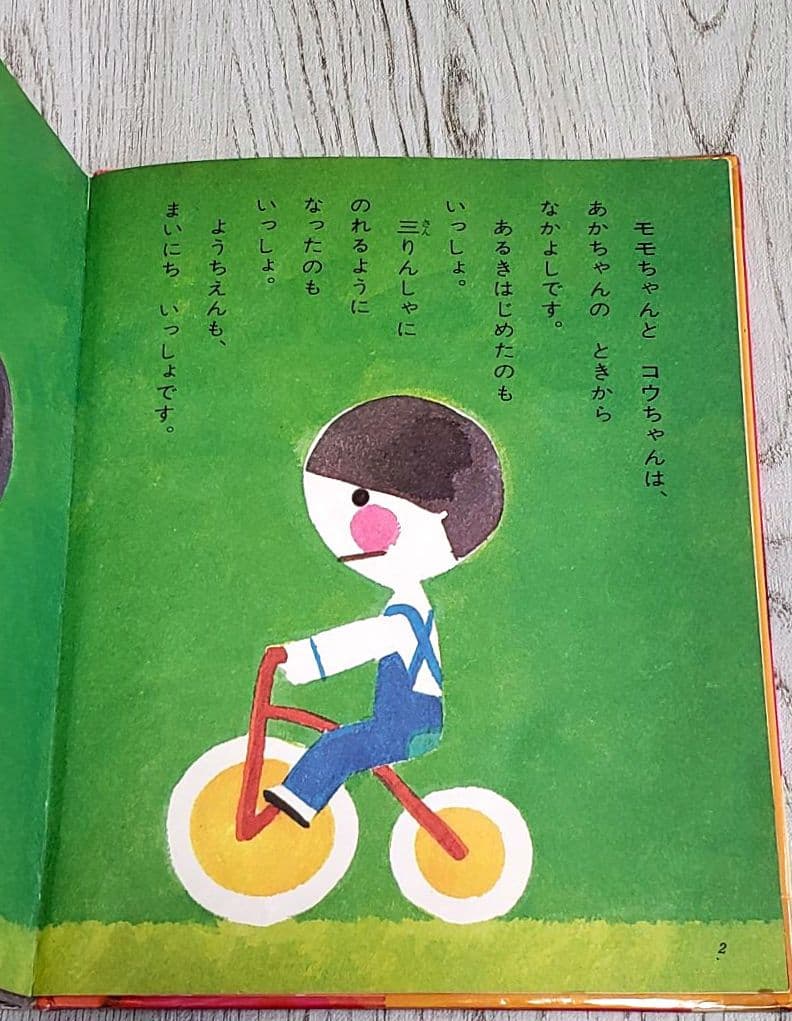 モモちゃんと　コウちゃんは、
あかちゃんの　ときから
なかよしです。
あるきはじめたのも
いっしょ。
三りんしゃに
さん
のれるように
なったのも
いっしょ。
ようちえんも、
まいにち　いっしょです。
2